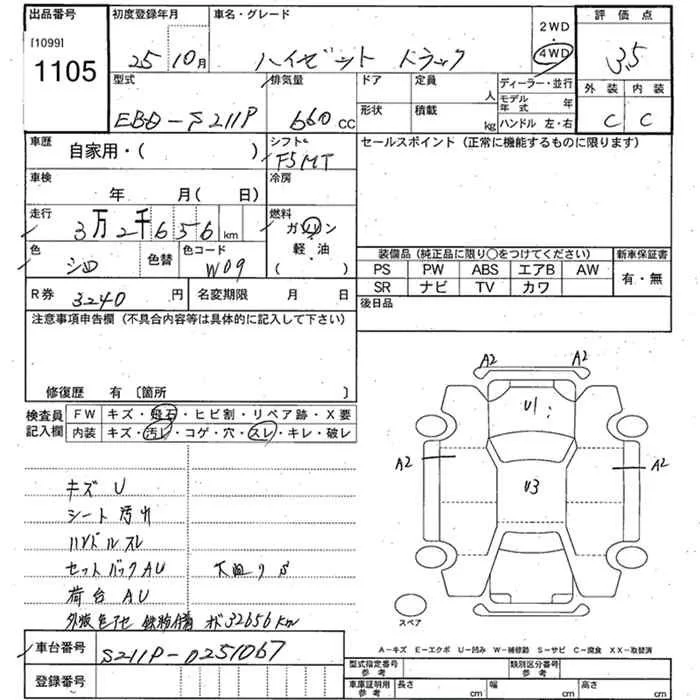 出品番号
[1099]
1105
初度登録年月
25 10月
車名・グレード
ハイゼット トラック
2WD
・
4WD
評価点
3.5
外装 内装
C C
型式
EBD-S211P
排気量
660 cc
ドア 定員 人
形状 積載 kg
ディーラー・並行
モデル年式 年
ハンドル 左・右
車歴
自家用・( )
シフト
F5MT
セールスポイント (正常に機能するものに限ります)
車検
年 月(日)
冷房
走行
3万2千656 km
燃料
ガソリン
・
軽油
( )
色
シロ
色替
色コード
W09
装備品 (純正品に限り○をつけてください)
新車保証書
PS PW ABS エアB AW
SR ナビ TV カワ
有・無
R券 3240 円
名変期限 月 日
後日品
注意事項申告欄 (不具合内容等は具体的に記入して下さい)
修復歴 有〔箇所 〕
検査員記入欄
FW キズ・飛石・ヒビ割・リペア跡・X要
内装 キズ・汚レ・コゲ・穴・スレ・キレ・破レ
A2 A2
U1
A2 A2
U3
キズ U
シート汚れ
ハンドルスレ
セットバックAU
下回りS
荷台AU
外板色アセ 32656km
スペア
A-キズ E-エクボ U-凹み W-補修跡 S-サビ C-腐食 XX-取替済
車台番号
S211P-0251067
登録番号
型式指定番号 参考
類別区分番号 参考
車庫証明用 参考
長さ cm
幅 cm
高さ cm